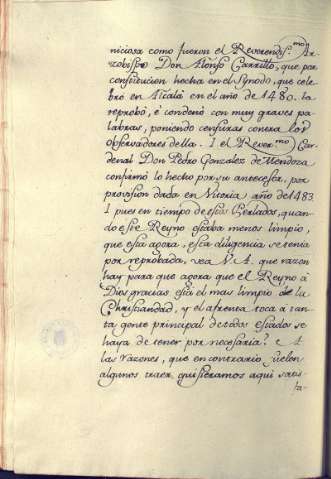 niciosa como fueron el Reverendis.mo Ar-
zobispo Don Alonso Carrillo, que por
constitucion hecha en el Synodo, que cele
bró en Alcalá en el año de 1480. la
reprobó, é condenó con muy graves pa-
labras, poniendo censuras contra los
observadores della. I el Rever.mo Car-
denal Don Pedro Gonzalez de Mendoza
confirmó lo hecho por su antecesor, por
provision dada en Vitoria año de 1483
I pues en tiempo de estos Perlados, quan-
do este Reyno estaba menos limpio,
que está agora, esta diligencia se tenia
por reprobada, vea V. A. que razon
hay para que agora que el Reyno á
Dios gracias está el mas limpio de la
Christiandad, y el afrenta toca a tan-
ta gente principal de todos estados se
haya de tener por necesaria? e A
las razones, que en contrario suelen
algunos traer, quisieramos aqui satis-
fa-